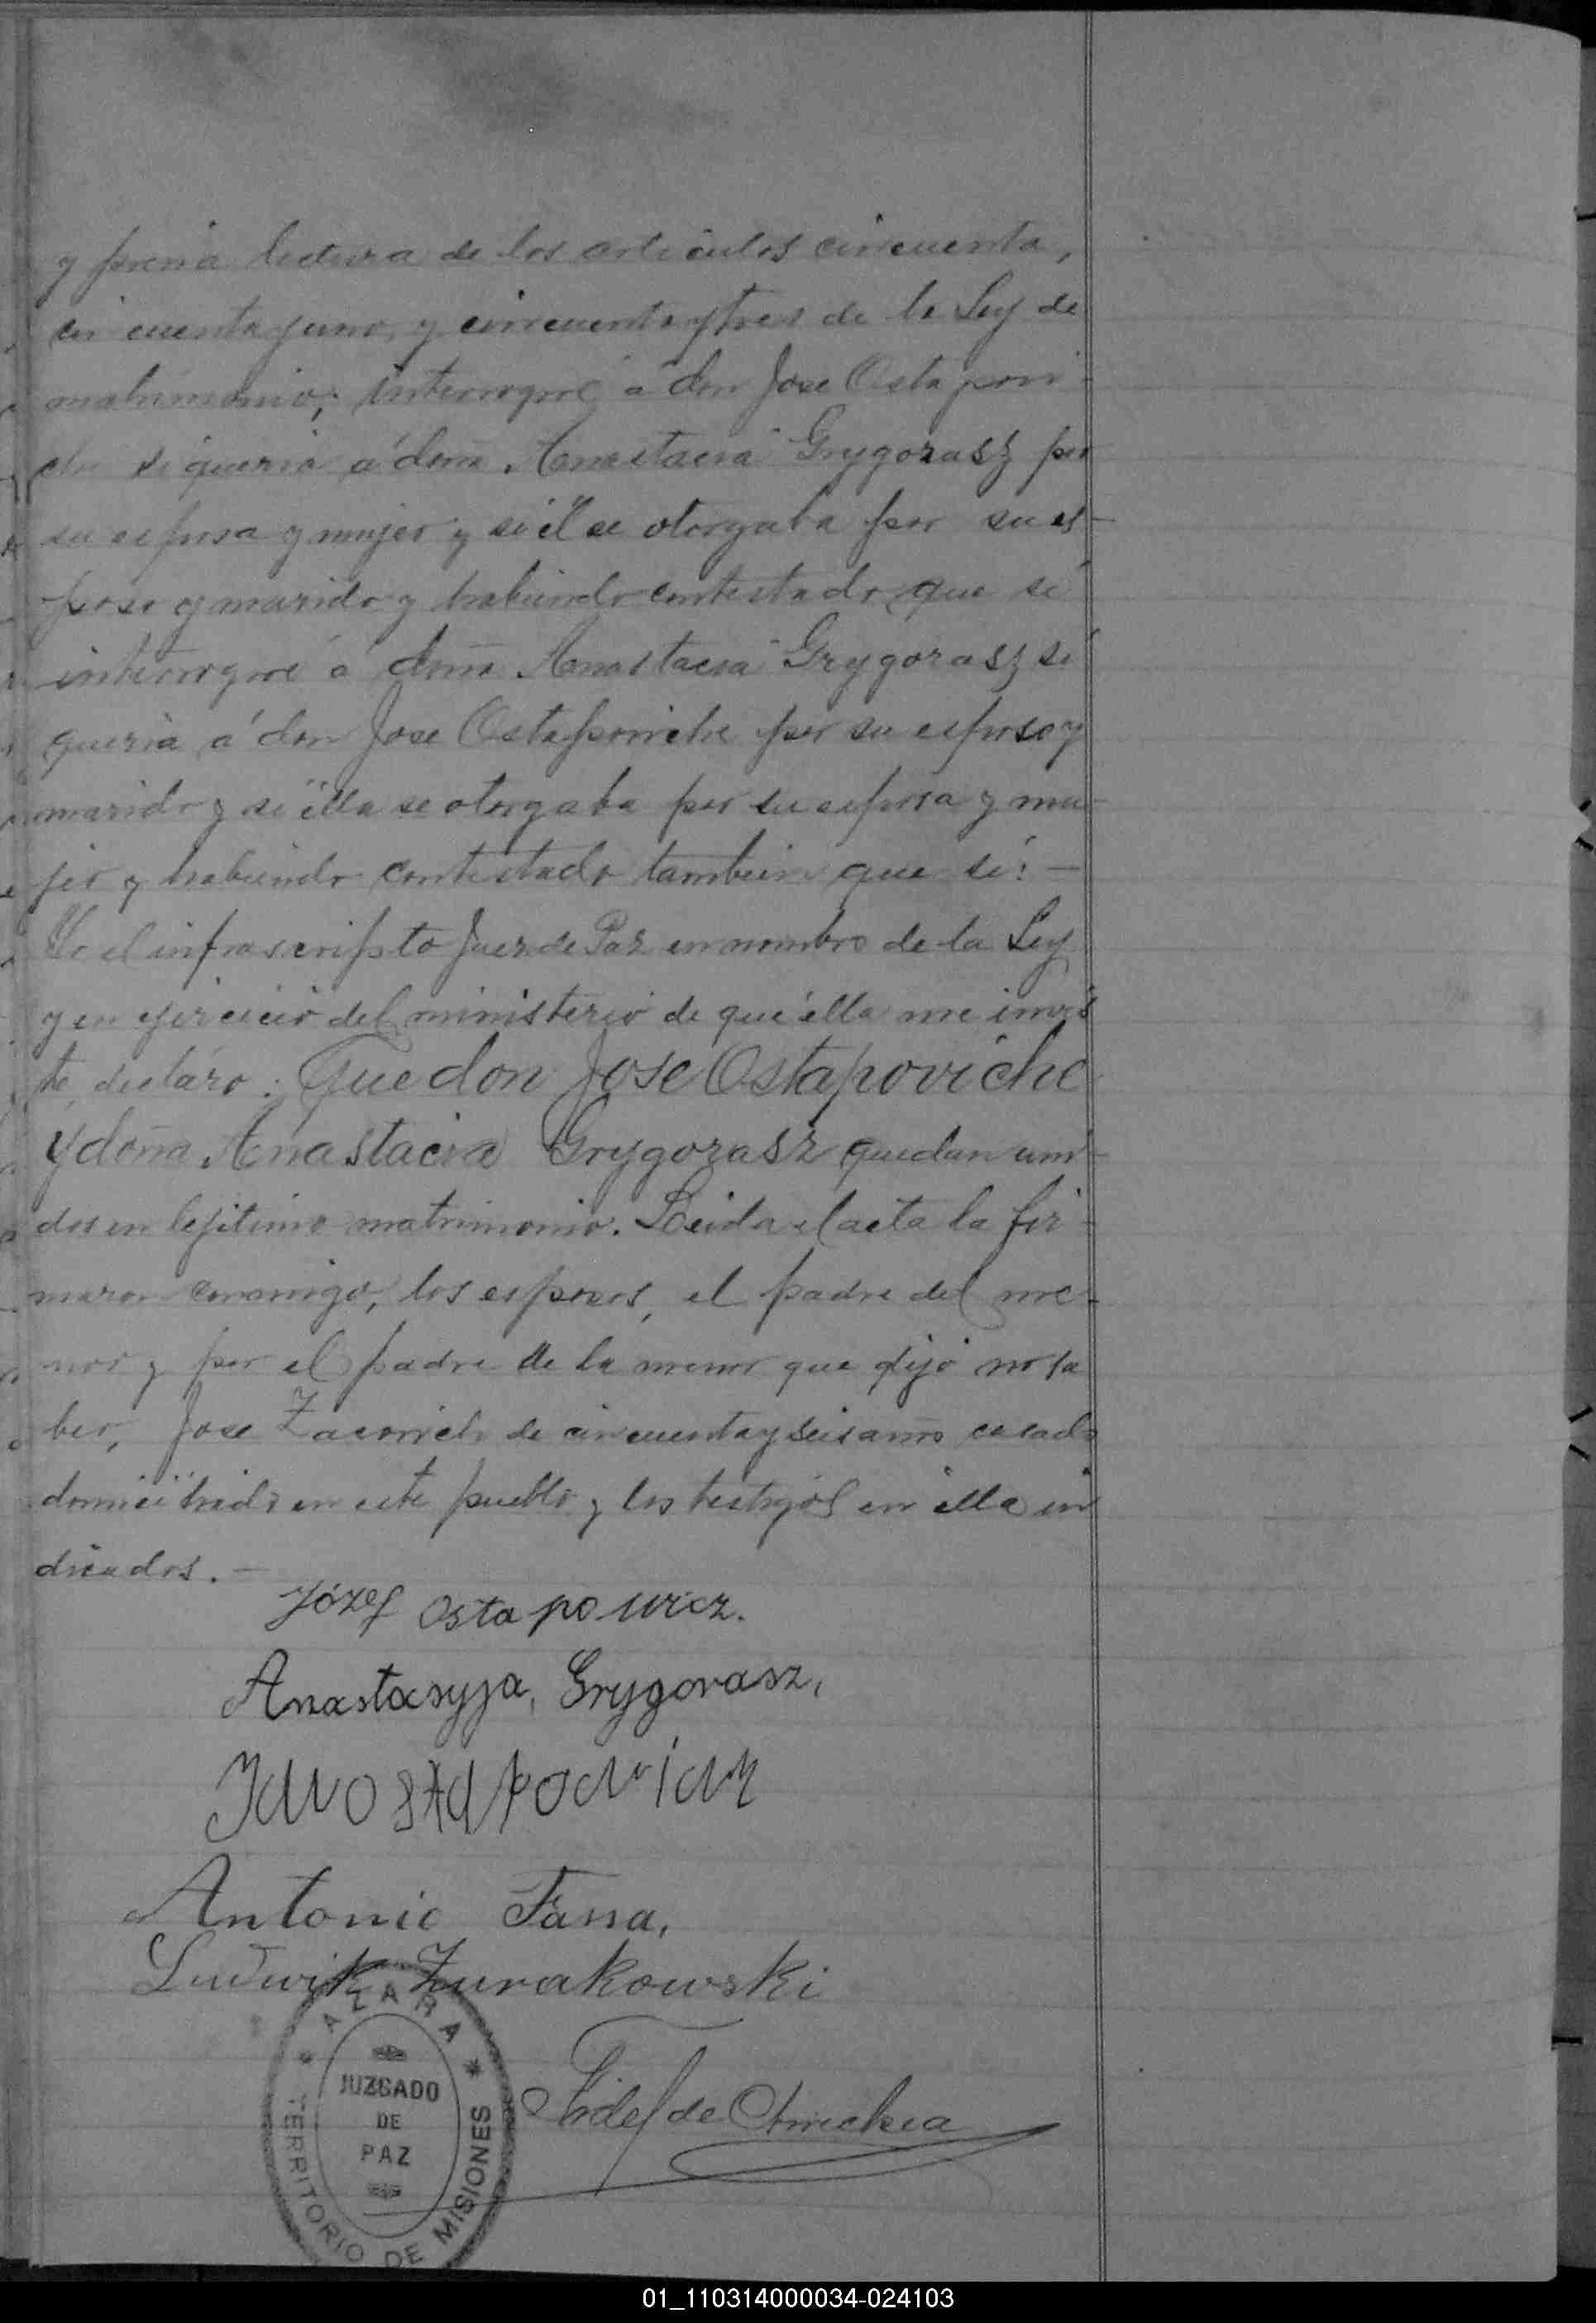 y previa lectura de los articulos cincuenta,
cincuenta y uno, y cincuenta y tres de la Ley de
matrimonio; interrogué á don Jose Ostapovi-
che si queria á doña Anastacia Grygorasz por
su esposa y mujer y si él se otorgaba por su es-
poso y marido y habiendo contestado que si
interrogué á doña Anastacia Grygorasz si
queria á don Jose Ostapoviche por su esposo y
marido y si élla se otorgaba por su esposa y mu-
jer y habiendo contestado tambien que si: —
Yo el infrascripto Juez de Paz en nombre de la Ley
y en ejercicio del ministerio de que élla me invis
te, declaro: Que don Jose Ostapoviche
y doña Anastacia Grygorasz quedan uni-
dos en lejitimo matrimonio. Leida el acta la fir-
maron conmigo, los esposos, el padre del me-
nor y por el padre de la menor que dijo no sa
ber, Jose de cincuenta y seis años casado
domiciliado en este pueblo y los testigos en élla in
dicados. —
Józef Ostapowicz.
Anastasyja, Grygorasz,
Antonio
Ludwik Zurakowski
Fidel de
* AZARA *
JUZGADO
DE
PAZ
TERRITORIO DE MISIONES
01_110314000034-024103